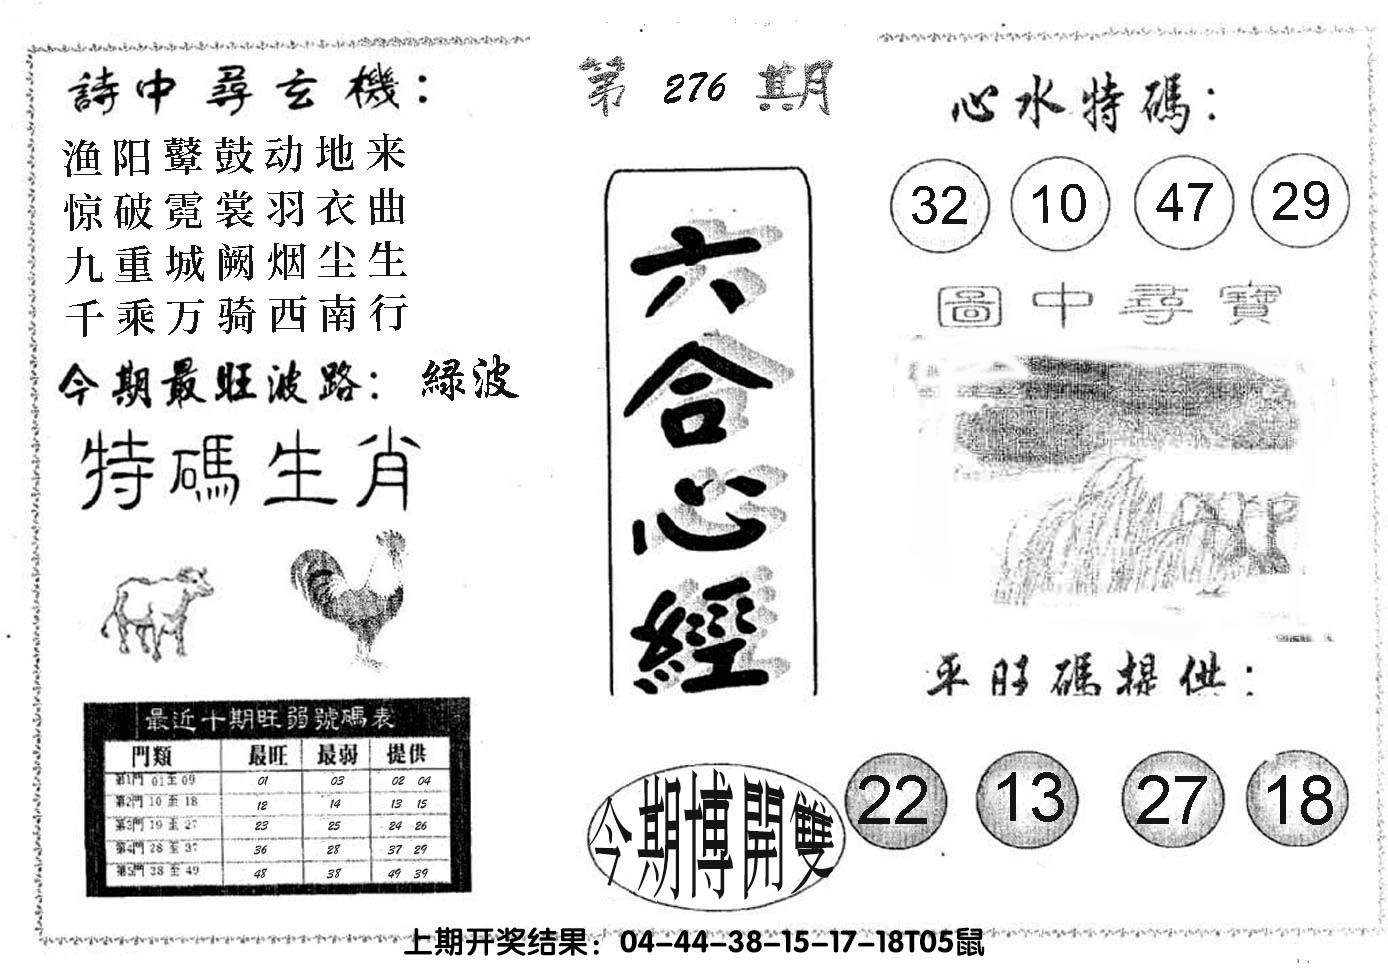 詩中尋玄機：
渔阳鼙鼓动地来
惊破霓裳羽衣曲
九重城阙烟尘生
千乘万骑西南行
今期最旺波路：綠波
特碼生肖
最近十期旺弱號碼表
門類 最旺 最弱 提供
第1門 01至09 01 03 02 04
第2門 10至18 12 14 13 15
第3門 19至27 23 25 24 26
第4門 28至37 36 28 37 29
第5門 38至49 48 38 49 39
第276期
六合心經
今期博開雙
心水特碼：
32 10 47 29
圖中尋寶
平旺碼提供：
22 13 27 18
上期开奖结果：04-44-38-15-17-18T05鼠